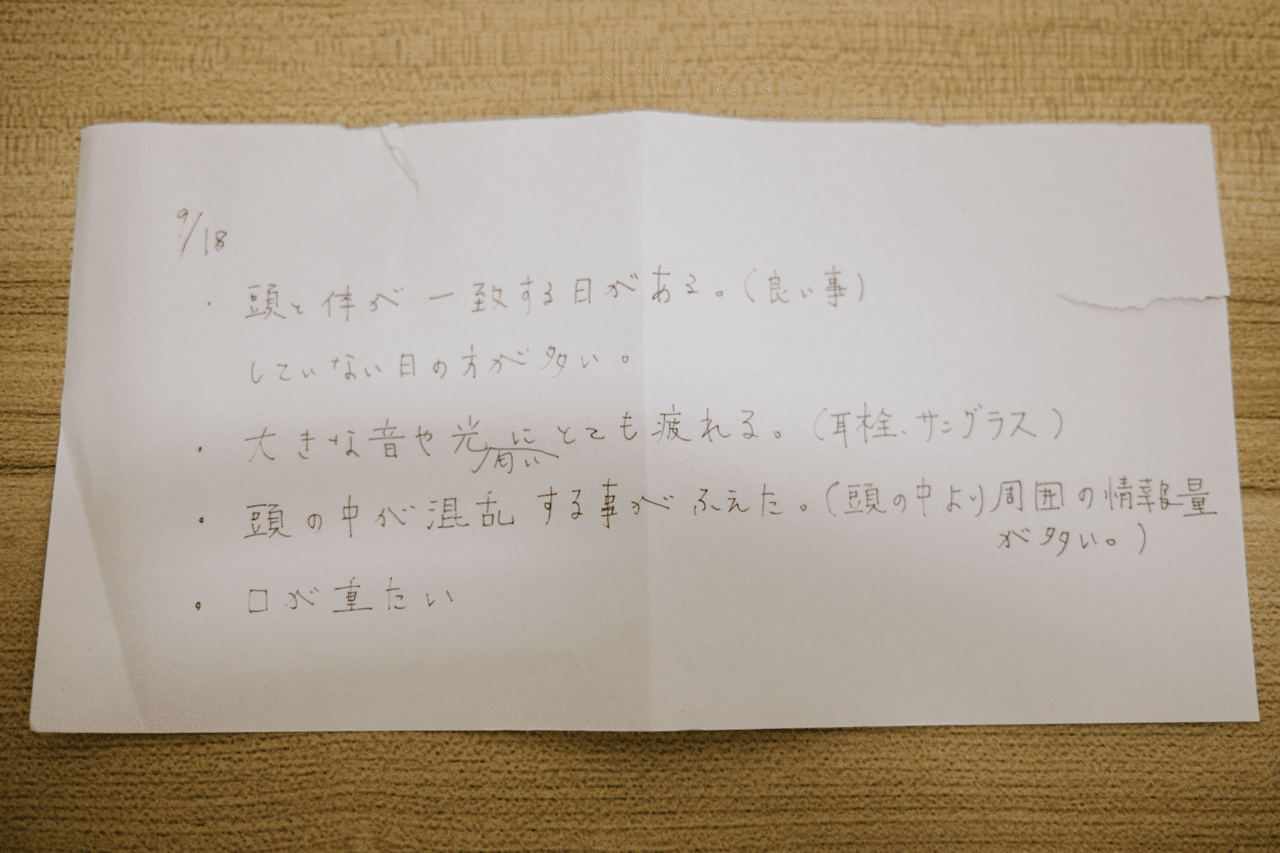 9/18
・頭と体が一致する日がある。(良い事)
していない日の方が多い。
・大きな音や光にとても疲れる。(耳栓、サングラス)
・頭の中が混乱する事がふえた。(頭の中より周囲の情報量
が多い。)
・口が重たい